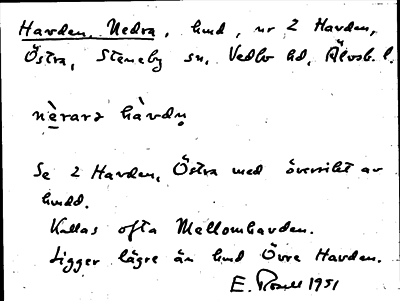 Havden, Nedra, hmd, nr 2 Havden,
Östra, Steneby sn, Vedbo hd, Älvsb. l.
nὲrarə hàvdn̥
Se 2 Havden, Östra med översikt av
hmdd.
Kallas ofta Mellomhavden.
Ligger lägre än hmd Övre Havden.
E. Rosell 1951